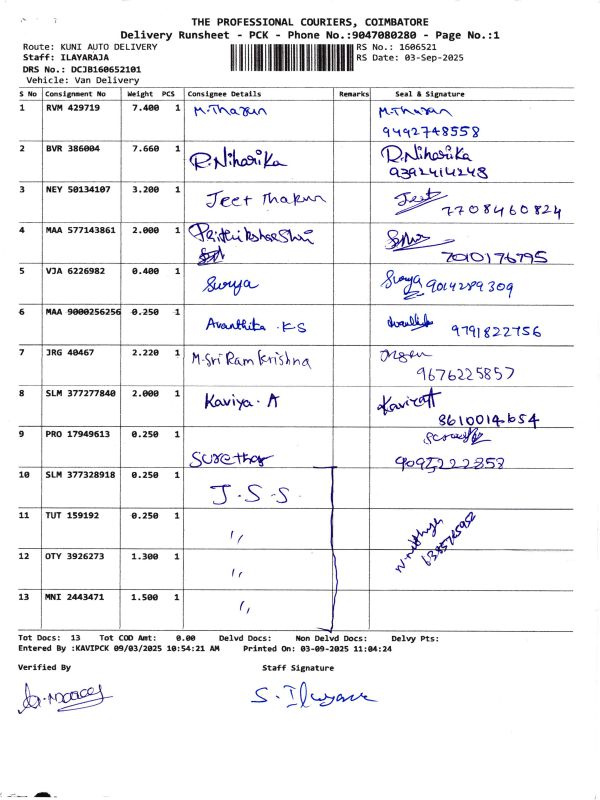 THE PROFESSIONAL COURIERS, COIMBATORE
Delivery Runsheet - PCK - Phone No.:9047080280 - Page No.:1
Route: KUNI AUTO DELIVERY RS No.: 1606521
Staff: ILAYARAJA RS Date: 03-Sep-2025
DRS No.: DCJB160652101
Vehicle: Van Delivery
S No Consignment No Weight PCS Consignee Details Remarks Seal & Signature
1 RVM 429719 7.400 1 M.Tharun M.Tharun
9492748558
2 BVR 386004 7.660 1 R.Niharika R.Niharika
9392414248
3 NEY 50134107 3.200 1 Jeet Thakur Jeet
7708460824
4 MAA 577143861 2.000 1
7010176795
5 VJA 6226982 0.400 1 Surya Surya 9014289309
6 MAA 9000256256 0.250 1 Avanthika . K S 9791822756
7 JRG 40467 2.220 1 M.Sri Ram Krishna
9676225857
8 SLM 377277840 2.000 1 Kaviya . A
8610014654
9 PRO 17949613 0.250 1
10 SLM 377328918 0.250 1 J . S . S .
11 TUT 159192 0.250 1 ,,
12 OTY 3926273 1.300 1 ,,
13 MNI 2443471 1.500 1 ,,
Tot Docs: 13 Tot COD Amt: 0.00 Delvd Docs: Non Delvd Docs: Delvy Pts:
Entered By :KAVIPCK 09/03/2025 10:54:21 AM Printed On: 03-09-2025 11:04:24
Verified By Staff Signature